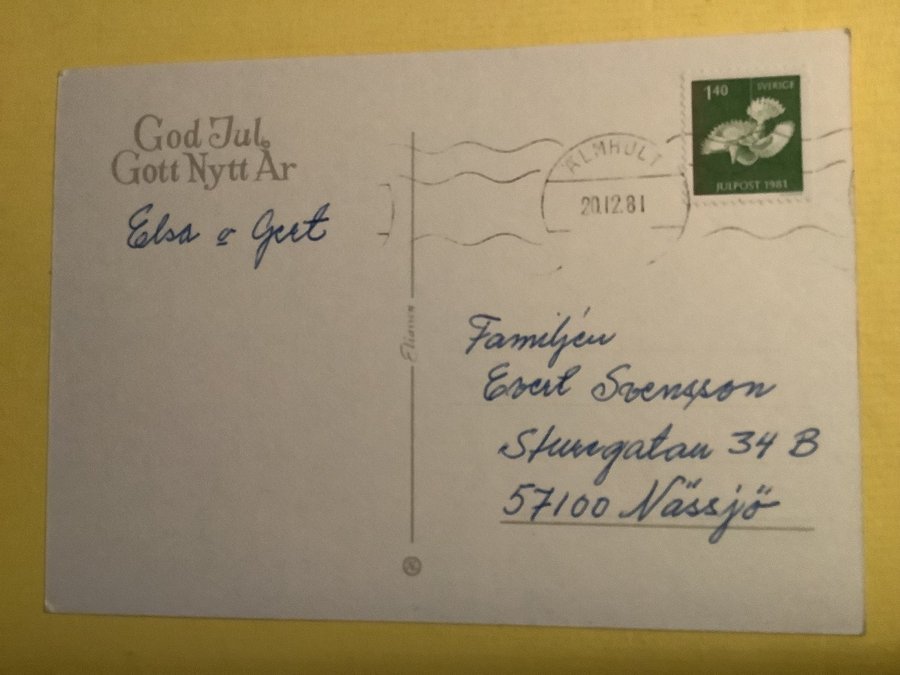 God Jul,
Gott Nytt År
Elsa o Gert
1 40
SVERIGE
JULPOST 1981
ÄLMHULT
20.12.81
Familjen
Evert Svensson
Sturegatan 34 B
57100 Nässjö